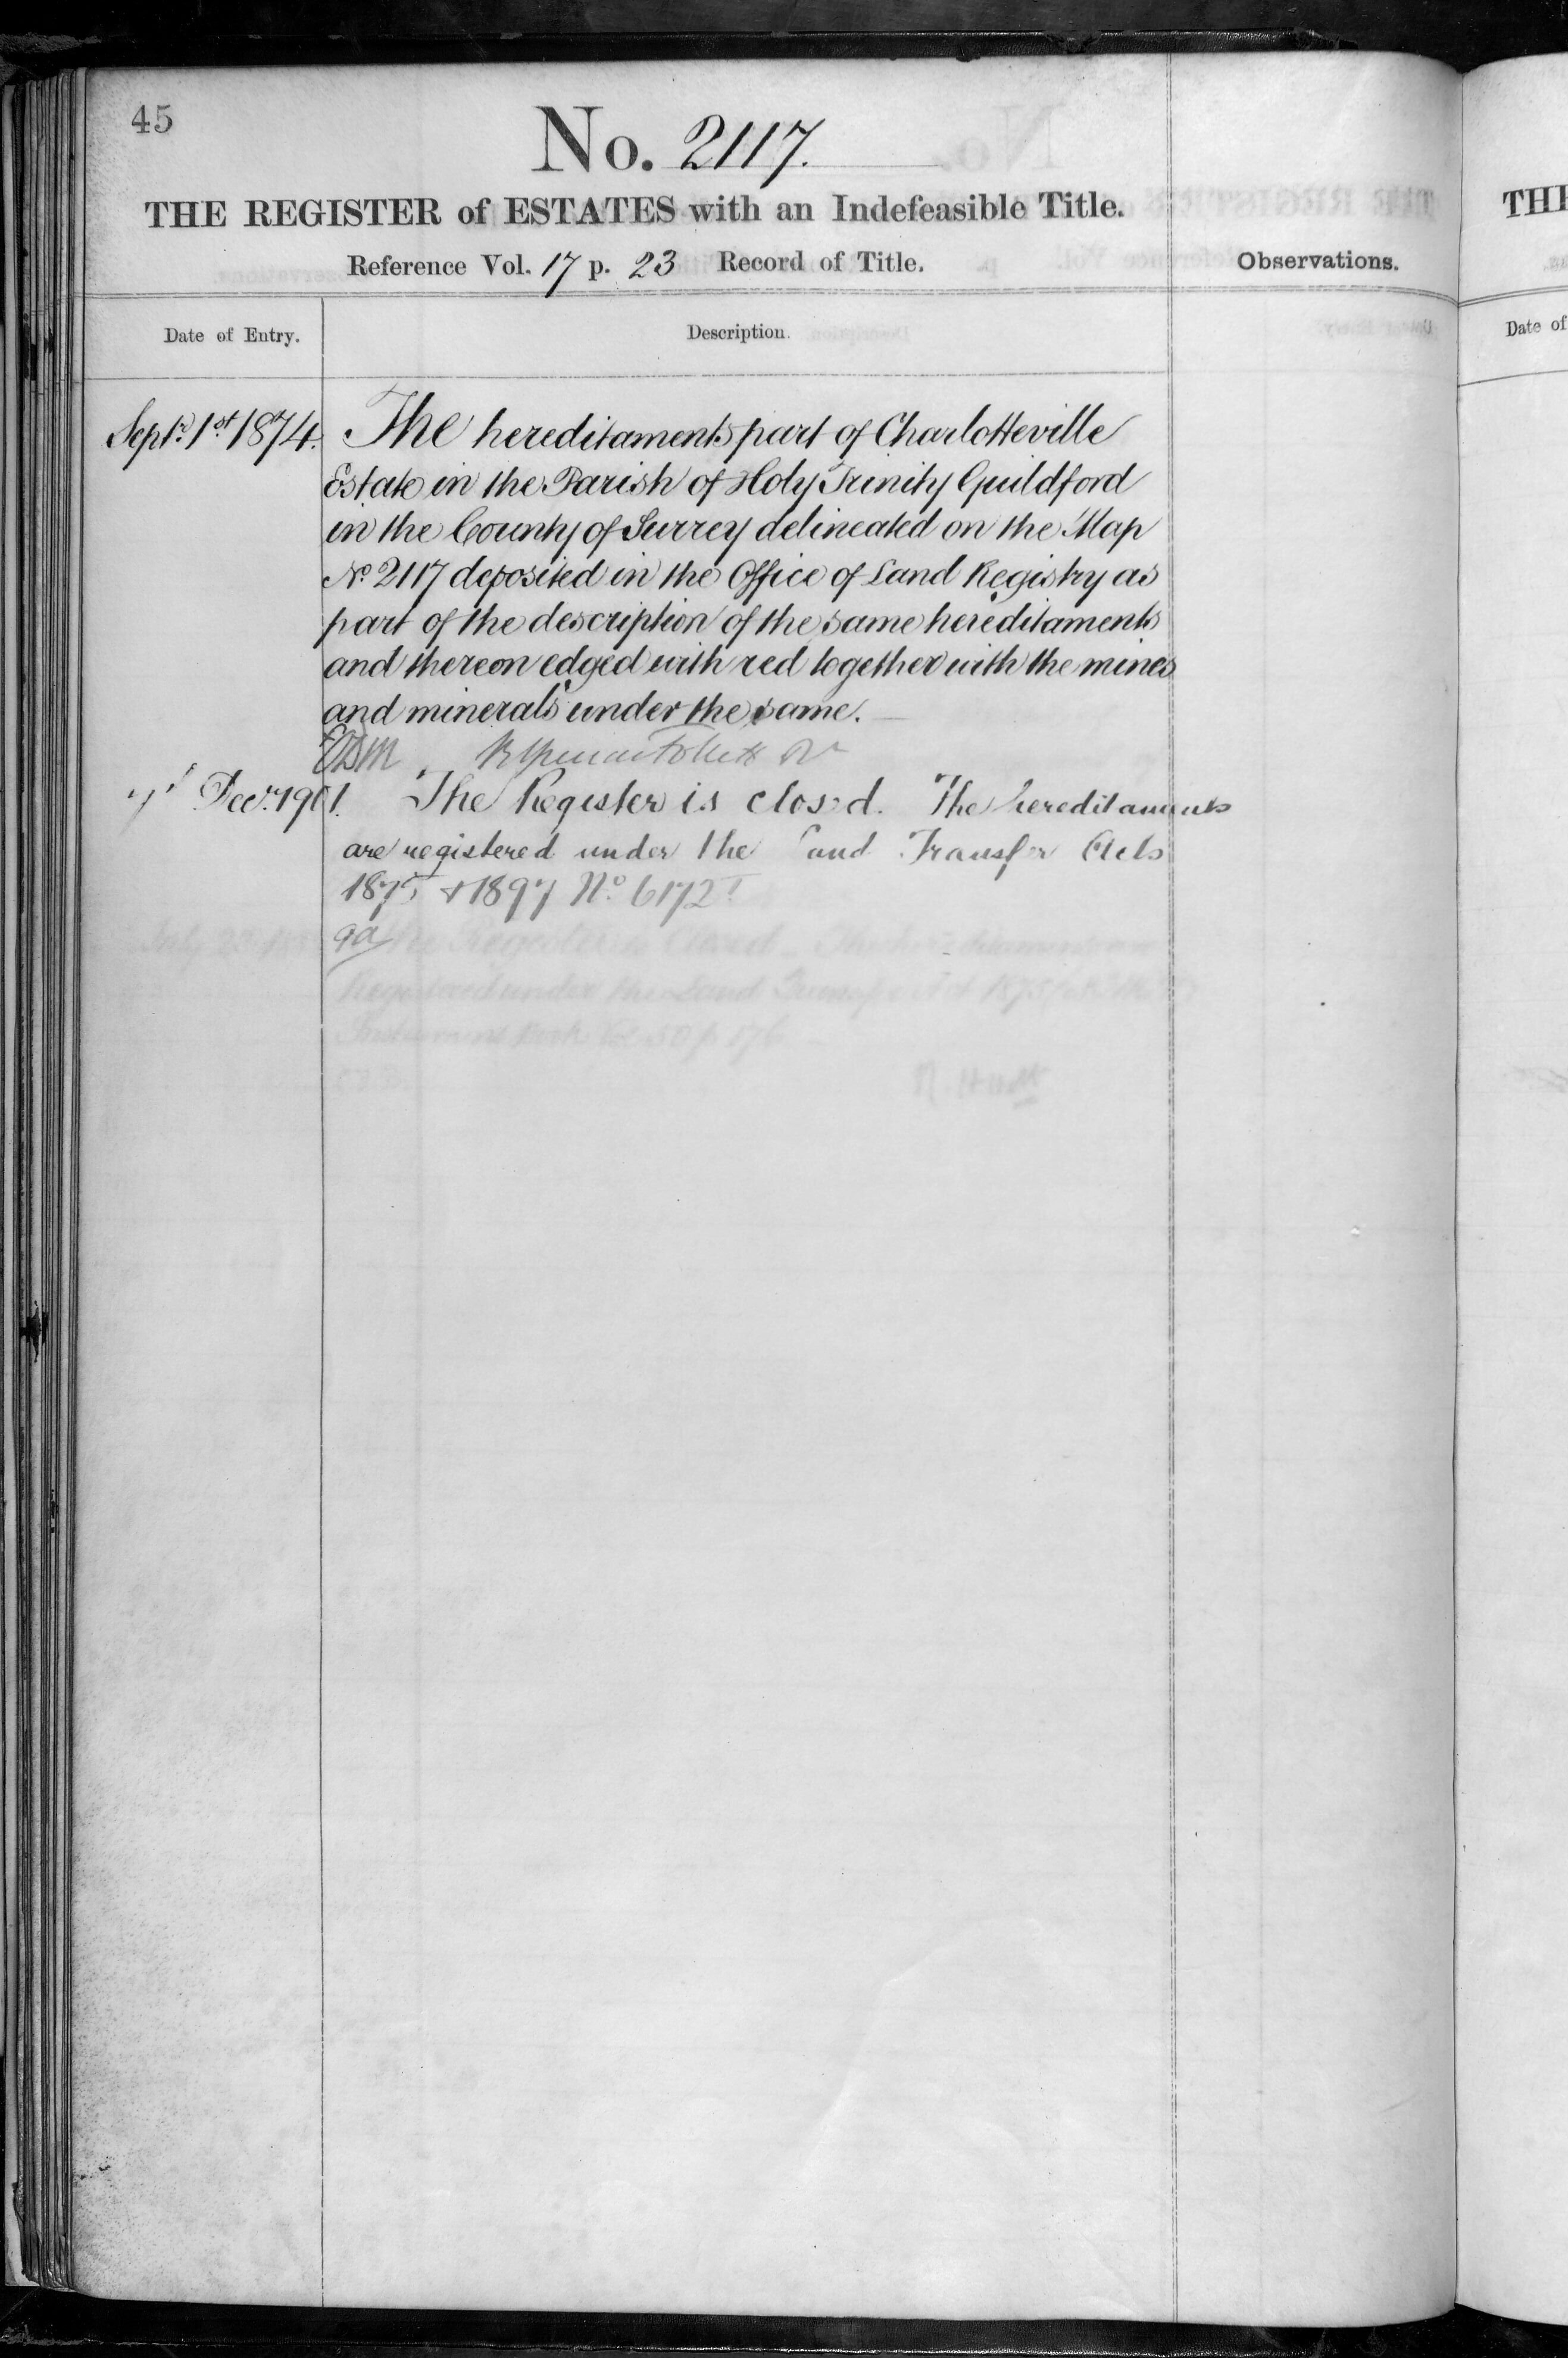 45
No. 2117.
THE REGISTER of ESTATES with an Indefeasible Title.
Reference Vol. 17 p. 23 Record of Title.
Observations.
Date of Entry.
Description.
Septr. 1st 1874.
The hereditaments part of Charlotteville
Estate in the Parish of Holy Trinity Guildford
in the County of Surrey delineated on the Map
No. 2117 deposited in the Office of Land Registry as
part of the description of the same hereditaments
and thereon edged with red together with the mines
and minerals under the same.
Decr. 1901. The Register is closed. The hereditaments
are registered under the Land Transfer Acts
1875 & 1897 No. 6172
The Register is Closed
Registered under the Land Transfer Act 1875
THE
Date of